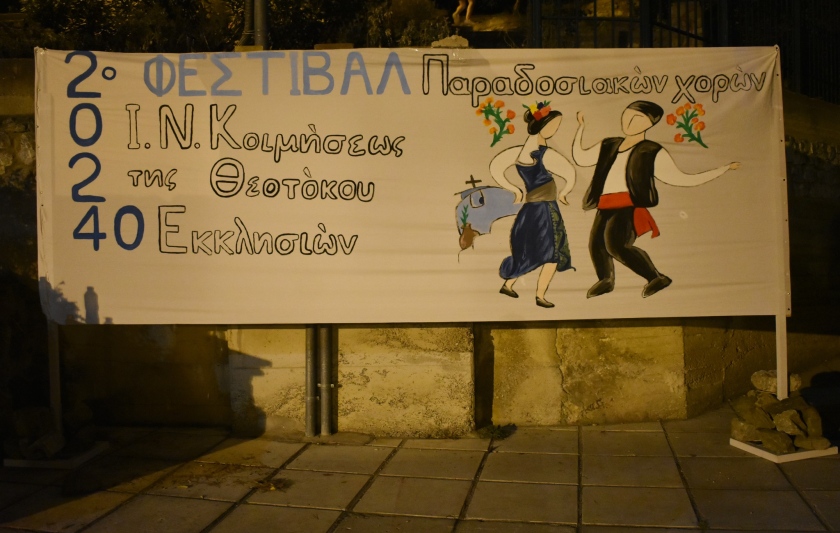 2ο ΦΕΣΤΙΒΑΛ Παραδοσιακών χορών
0 Ι.Ν. Κοιμήσεως
2 της Θεοτόκου
4 40 Εκκλησιών